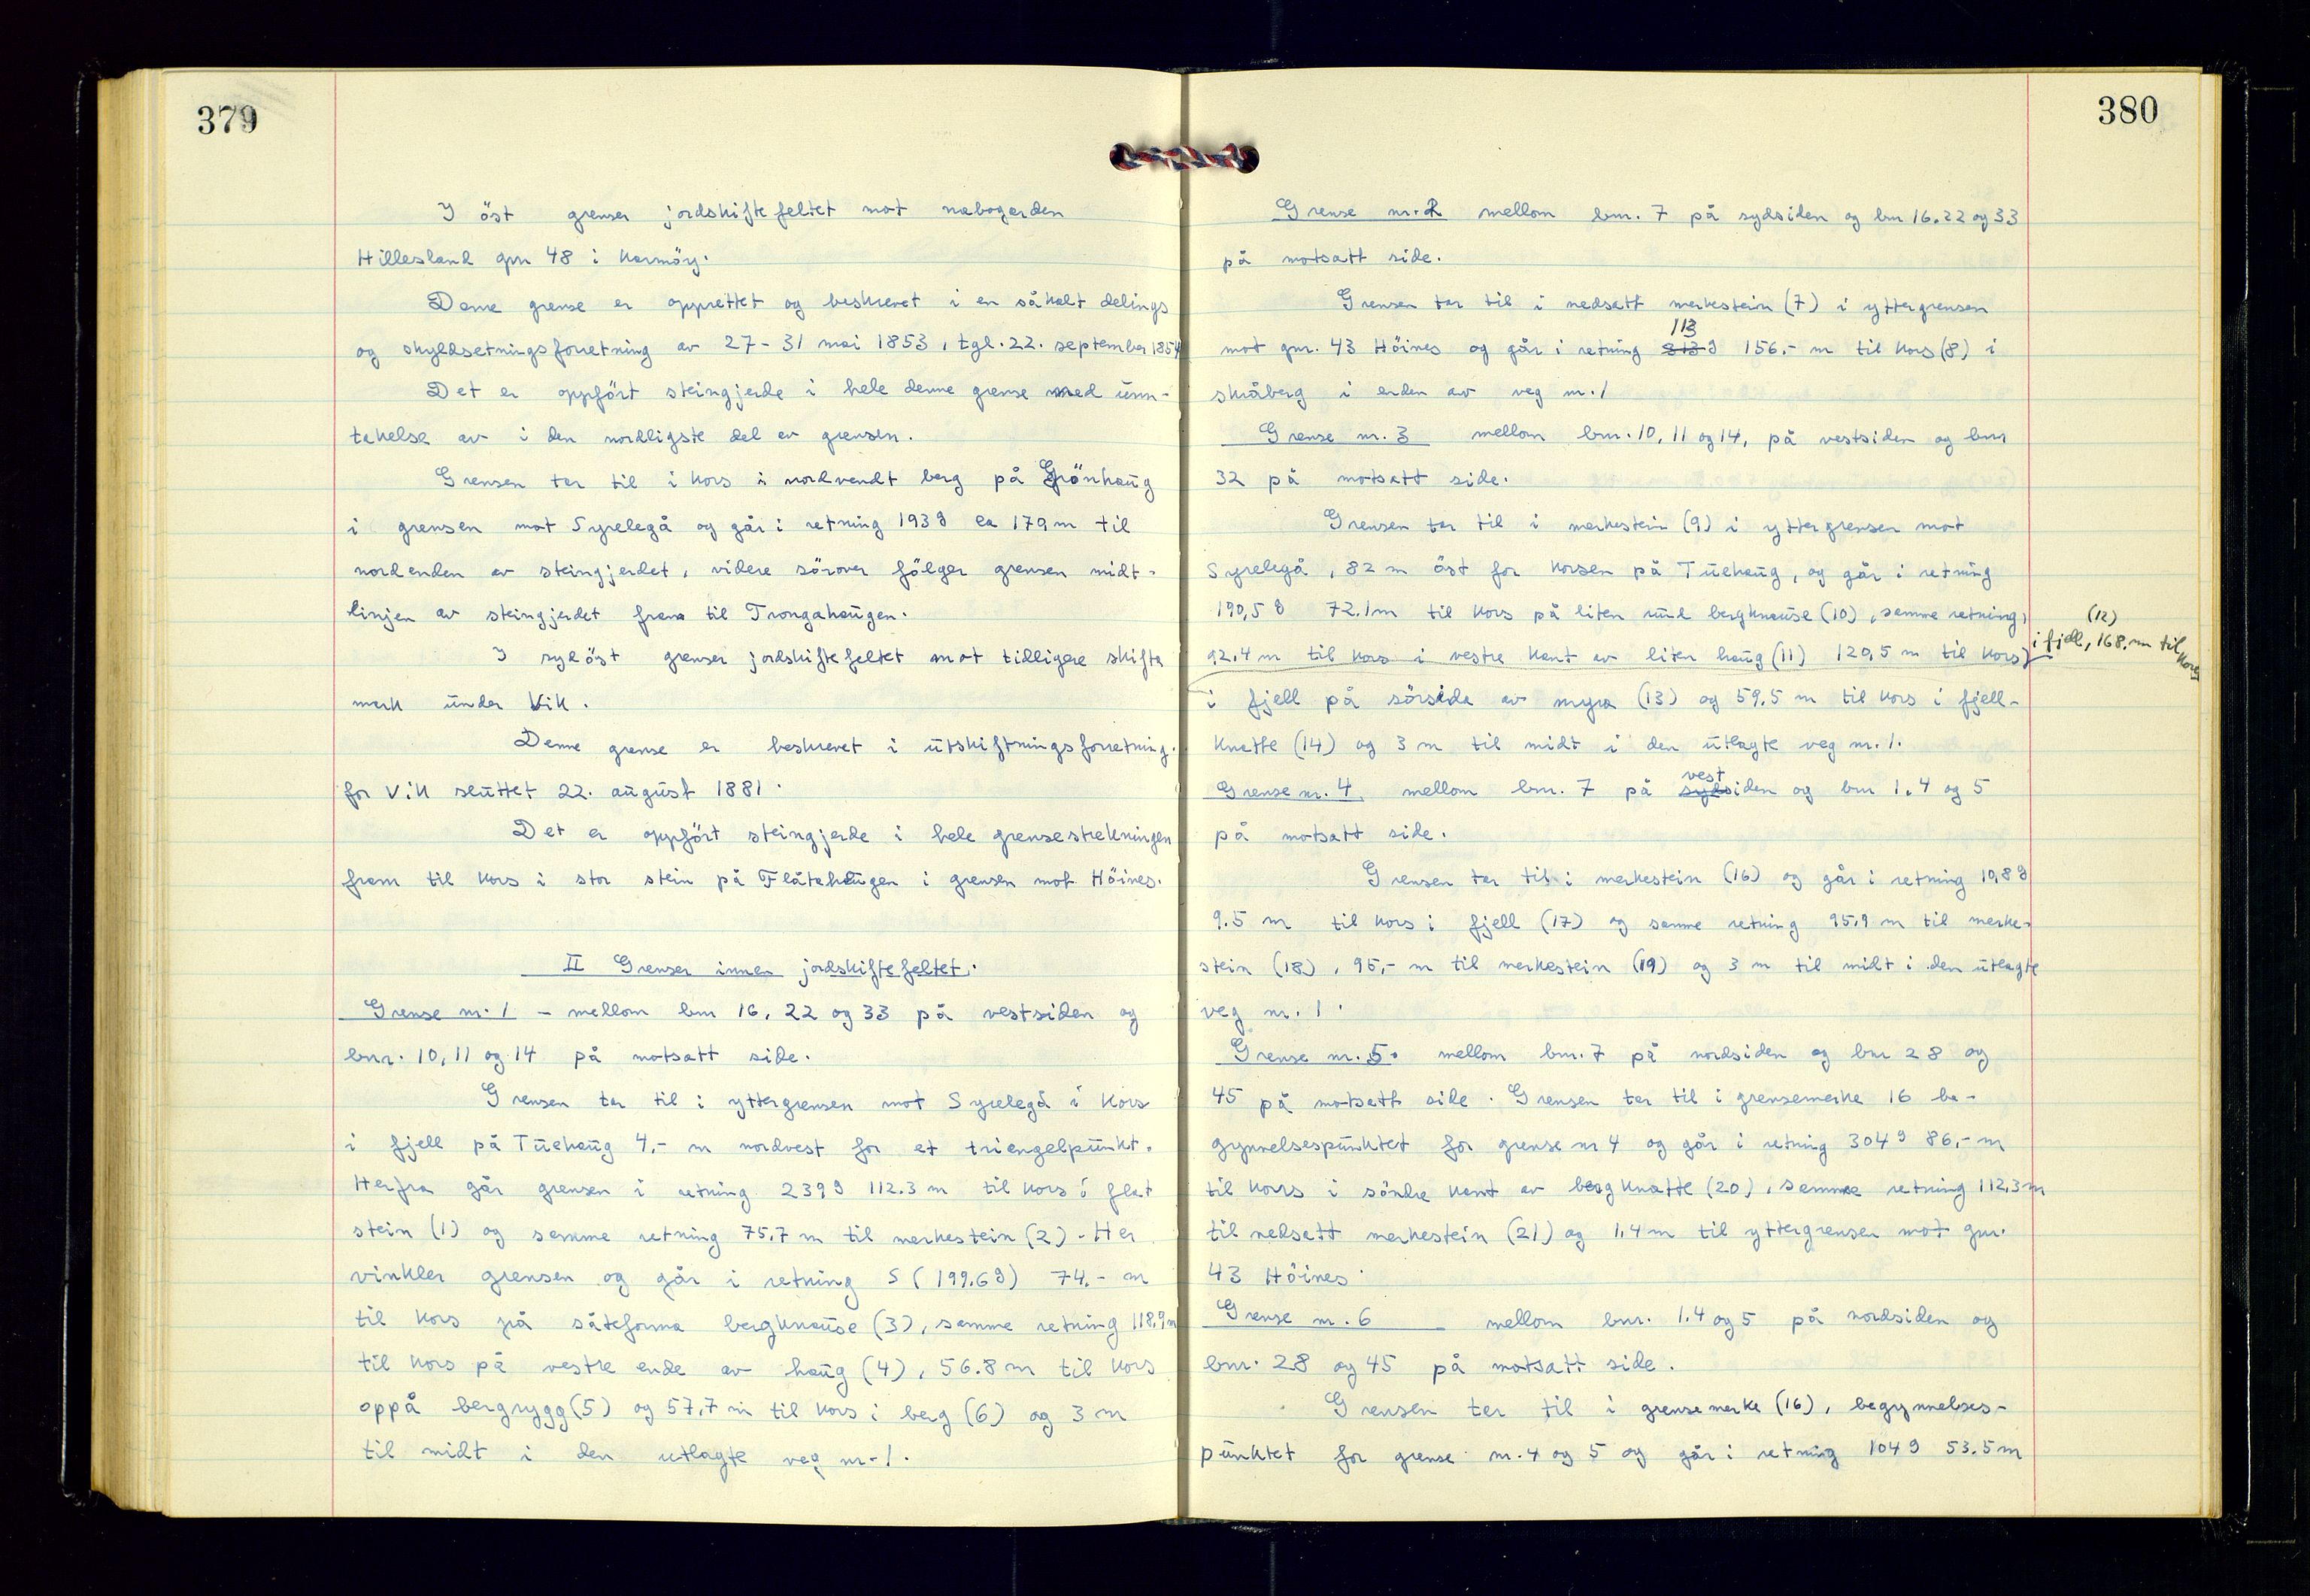 379
I öst grenser jordskiftefeltet mot nabogarden
Hillesland gnr 48 i Karmöy.
Denne grense er opprettet og beskrevet i en såkalt delings
og skyldsetningsforretning av 27-31 mai 1853, tgl. 22. september 1854
Det er oppfört steingjerde i hele denne grense med unn-
takelse av i den nordligste del av grensen.
Grensen tar til i kors i nordvendt berg på Grönhaug
i grensen mot Syrelegå og går i retning 193g ca 179 m til
nordenden av steingjerdet, videre sörover fölger grensen midt-
linjen av steingjerdet fram til Trongahaugen.
I sydöst grenser jordskiftefeltet mot tidligere skifta
mark under Vik.
Denne grense er beskrevet i utskiftningsforretning.
for Vik sluttet 22. august 1881.
Det er oppfört steingjerde i hele grensestrekningen
fram til kors i stor stein på Flåtehaugen i grensen mot Höines.
II Grenser innen jordskiftefeltet.
Grense nr. 1 - mellom bnr 16, 22 og 33 på vestsiden og
bnr. 10, 11 og 14 på motsatt side.
Grensen tar til i yttergrensen mot Syrelegå i kors
i fjell på Tuehaug 4,- m nordvest for et triangelpunkt.
Herfra går grensen i retning 239g 112.3 m til kors i flat
stein (1) og samme retning 75,7 m til merkestein (2). Her
vinkler grensen og går i retning S (199.6g) 74.- m
til kors på såteforma bergknause (3), samme retning 118,9 m
til kors på vestre ende av haug (4), 56.8 m til kors
oppå bergrygg (5) og 57,7 m til kors i berg (6) og 3 m
til midt i den utlagte veg nr. 1.
380
Grense nr. 2 mellom bnr. 7 på sydsiden og bnr 16, 22 og 33
på motsatt side.
Grensen tar til i nedsatt merkestein (7) i yttergrensen
113
mot gnr. 43 Höines og går i retning 313 g 156,- m til kors (8) i
skråberg i enden av veg nr. 1
Grense nr. 3 mellom bnr. 10, 11 og 14, på vestsiden og bnr
32 på motsatt side.
Grensen tar til i merkestein (9) i yttergrensen mot
Syrelegå, 82 m öst for korsen på Tuehaug, og går i retning
190,5 g 72.1 m til kors på liten rund bergknause (10), samme retning,
92,4 m til kors i vestre kant av liten haug (11) 120,5 m til kors
(12)
i fjell, 168,- m til kors
i fjell på sörsida av myra (13) og 59.5 m til kors i fjell-
knatte (14) og 3 m til midt i den utlagte veg nr. 1.
vest
Grense nr. 4 mellom bnr. 7 på sydsiden og bnr 1, 4 og 5
på motsatt side.
Grensen tar til i merkestein (16) og går i retning 10,8 g
9.5 m til kors i fjell (17) og samme retning 95,9 m til merke-
stein (18), 95,- m til merkestein (19) og 3 m til midt i den utlagte
veg nr. 1.
Grense nr. 5. mellom bnr. 7 på nordsiden og bnr 28 og
45 på motsatt side. Grensen tar til i grensemerke 16 be-
gynnelsespunktet for grense nr 4 og går i retning 304 g 86,- m
til kors i söndre kant av bergknatte (20), samme retning 112,3 m
til nedsatt merkestein (21) og 1,4 m til yttergrensen mot gnr.
43 Höines.
Grense nr. 6 mellom bnr. 1.4 og 5 på nordsiden og
bnr. 28 og 45 på motsatt side.
Grensen tar til i grensemerke (16), begynnelses-
punktet for grense nr. 4 og 5 og går i retning 104 g 53.5 m